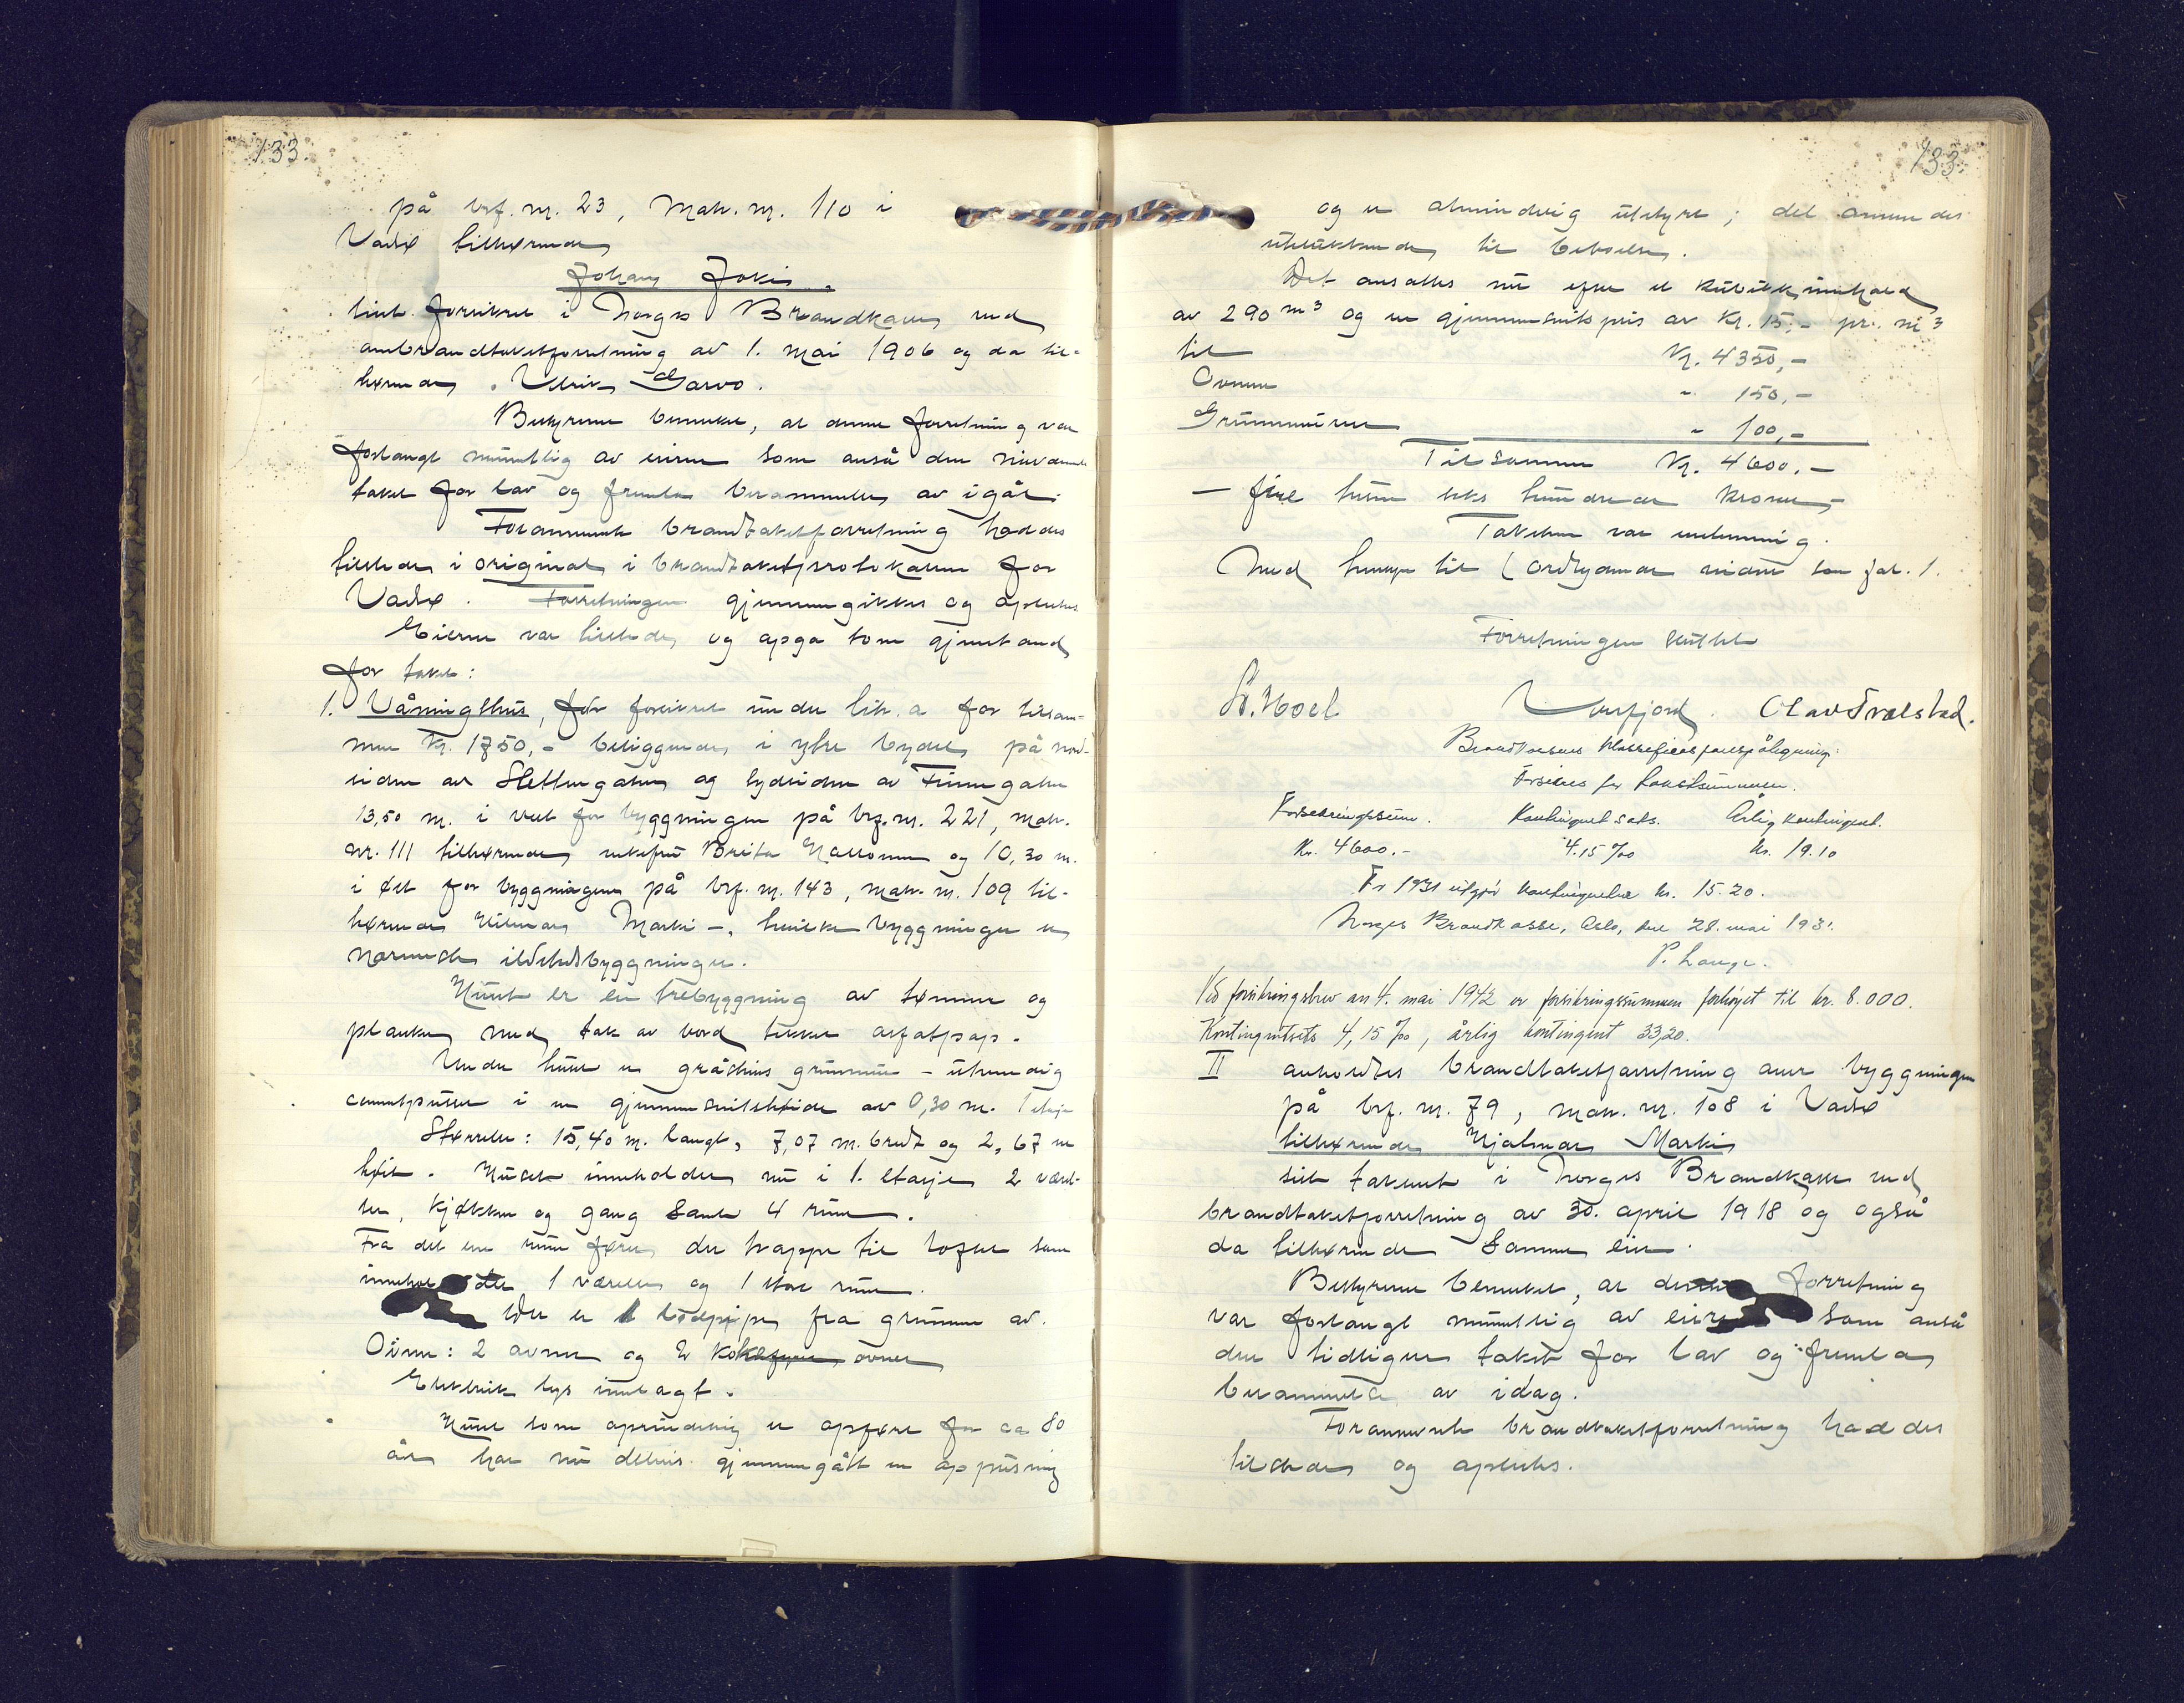 133.
på brf. nr. 23, Matr. nr. 110 i
Vadsø tilhørende
Johan Joki.
sist forsikret i Norges Brandkasse ved
ombrandtakstforretning av 1. mai 1906 og da til-
hørende Ulrik Garvo.
Bestyreren bemerket, at denne forretning var
forlangt muntlig av eieren som anså den nuværende
takst for lav og fremla berammelse av igår.
Forannevnte brandtakstforretning haddes
tilstede i original i brandtakstprotokollen for
Vadsø. Forretningen gjennemgikkes og oplestes
Eieren var tilstede og opga som gjenstand
for takst:
1. Våningshus, før forsikret under litr. a for tilsam-
men kr. 1750,- beliggende i ytre bydel på nord-
siden av Slettengaten og sydsiden av Finnegaten
13,50 m. i vest for bygningen på brf. nr. 221, matr.
nr. 111 tilhørende enkefru Brita og 10,30 m.
i øst for bygningen på brf. nr. 143, matr. nr. 109 til-
hørende Hilmar Marki -, hvilke bygninger er
nærmeste ildstedsbygninger.
Huset er en trebygning av tømmer og
planker med tak av bord tekket asfaltpap.
Under huset er gråstens grunnmur - utvendig
cementpusset i en gjennemsnitshøide av 0,30 m. 1 etasje
Størrelse: 15,40 m. langt, 7,07 m. bredt og 2,67 m
høit. Huset inneholder nu i 1. etasje 2 værel-
ser, kjøkken og gang samt 4 rum.
Fra det ene rum fører der trappe til loftet som
inneholder 1 værelse og 1 stort rum.
Der er 1 lødpipe fra grunnen av.
Ovner: 2 ovner og 2 kokeovner
Elektrisk lys innlagt.
Huset som oprindelig er opført for ca 80
år har nu delvis gjennemgått en oppussing
133.
og er almindelig utstyrt; det anvendes
utelukkende til beboelse.
Det ansattes nu efter et kubikkinnhold
av 290 m³ og en gjennemsnitspris av kr. 15,- pr. m³
til Kr. 4350,-
Ovnene " 150,-
Grunnmuren " 100,-
Tilsammen Kr. 4600,-
- fire tusen seks hundrede kroner -
Taksten var enstemmig.
Med hensyn til ordlydende videre som for. 1.
Forretningen sluttet
St. Moel Olav Trælstad.
Brandkassens klassifikasjonspåtegning:
Forsikres for takstsummen.
Forsikringssum. Kontingentsats. Årlig kontingent.
Kr. 4600.- 4.15 ‰ kr. 19.10
For 1931 utgjør kontingenten kr. 15.20.
Norges Brandkasse, Oslo, den 28. mai 1931.
P. Lange.
Ved forsikringsbrev av 4. mai 1942 er forsikringssummen forhøjet til kr. 8.000.
Kontingentsats 4,15 ‰, årlig kontingent 33,20.
II avholdtes brandtakstforretning over bygningen
på brf. nr. 79, matr. nr. 108 i Vadsø
tilhørende Hjalmar Marki
sist taksert i Norges Brandkasse ved
brandtakstforretning av 30. april 1918 og også
da tilhørende samme eier.
Bestyreren bemerket, at denne forretning
var forlangt muntlig av eieren som anså
den tidligere takst for lav og fremla
berammelse av idag.
Forannevnte brandtakstforretning haddes
tilstede og oplestes.